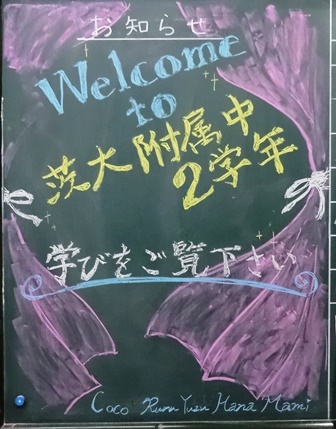 お知らせ
Welcome
to
茨大附属中
2学年
学びをご覧下さい
Coco Ruru Yuzu Hana Mami